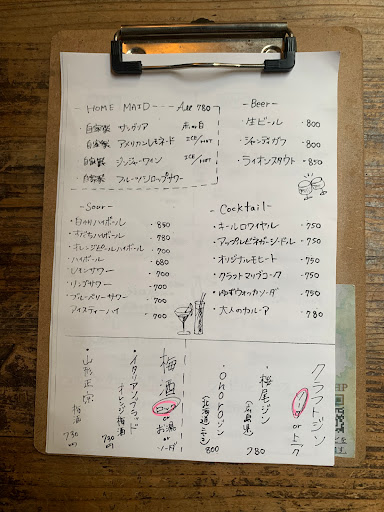 HOME MAID — ALL 780
自家製 サングリア 赤or白
自家製 アメリカンレモネード ICE/HOT
自家製 ジンジャーワイン ICE/HOT
自家製 フルーツシロップサワー
—Beer—
・生ビール ・800
・シャンディガフ ・800
・ライオンスタウト ・850
—Sour—
ハイボール ・850
ハイボール ・780
・オレンジピールハイボール ・700
・ハイボール ・680
・レモンサワー ・700
・リンゴサワー ・700
・ブルーベリーサワー ・700
・アイスティーハイ ・700
Cocktail—
・キールロワイヤル ・750
・アップルビネガーシードル ・750
・オリジナルモヒート ・750
・クラフトマップコーク ・750
・ゆずウォッカソーダ ・750
・大人のカルーア ・780
クラフトジン
ソーダ or トニック
・桜尾ジン
(広島県) 780
・OHOROジン
(北海道ニセコ) 800
梅酒
ロック or お湯 or ソーダ
・イタリアンブラッド
オレンジ梅酒 730円
・山形正宗
梅酒 730円